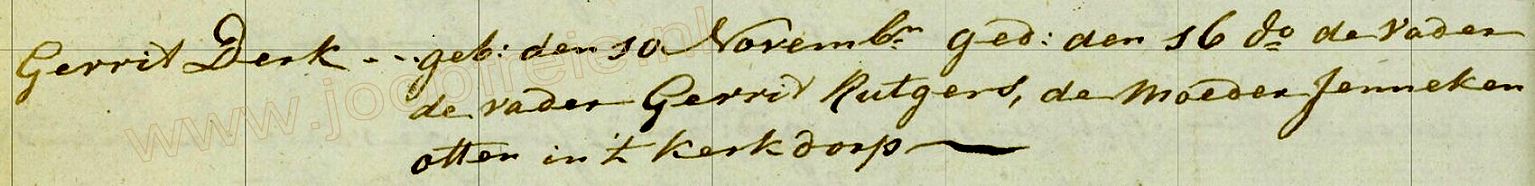 Gerrit Derk - - . geb: den 10 Novembr. ged: den 16 do de Vader
de vader Gerrit Rutgers, de Moeder Jenneken
otten in 't Kerkdorp